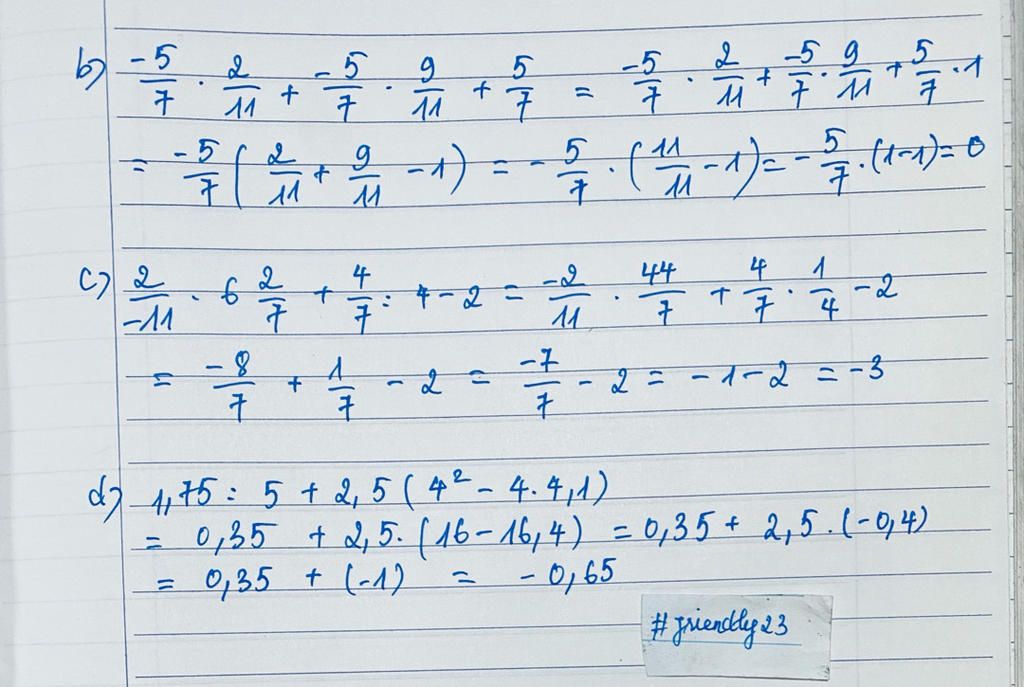 b) -5/7 . 2/11 + -5/7 . 9/11 + 5/7 = -5/7 . 2/11 + -5/7 . 9/11 + 5/7 . 1
= -5/7 ( 2/11 + 9/11 - 1) = - 5/7 . ( 11/11 - 1) = - 5/7 . (1-1) = 0
c) 2/-11 . 6 2/7 + 4/7 : 4 - 2 = -2/11 . 44/7 + 4/7 . 1/4 - 2
= -8/7 + 1/7 - 2 = -7/7 - 2 = - 1 - 2 = -3
d) 1,75 : 5 + 2,5 ( 4² - 4.4,1)
= 0,35 + 2,5. (16 - 16,4) = 0,35 + 2,5 . (-0,4)
= 0,35 + (-1) = - 0,65
#friendly23